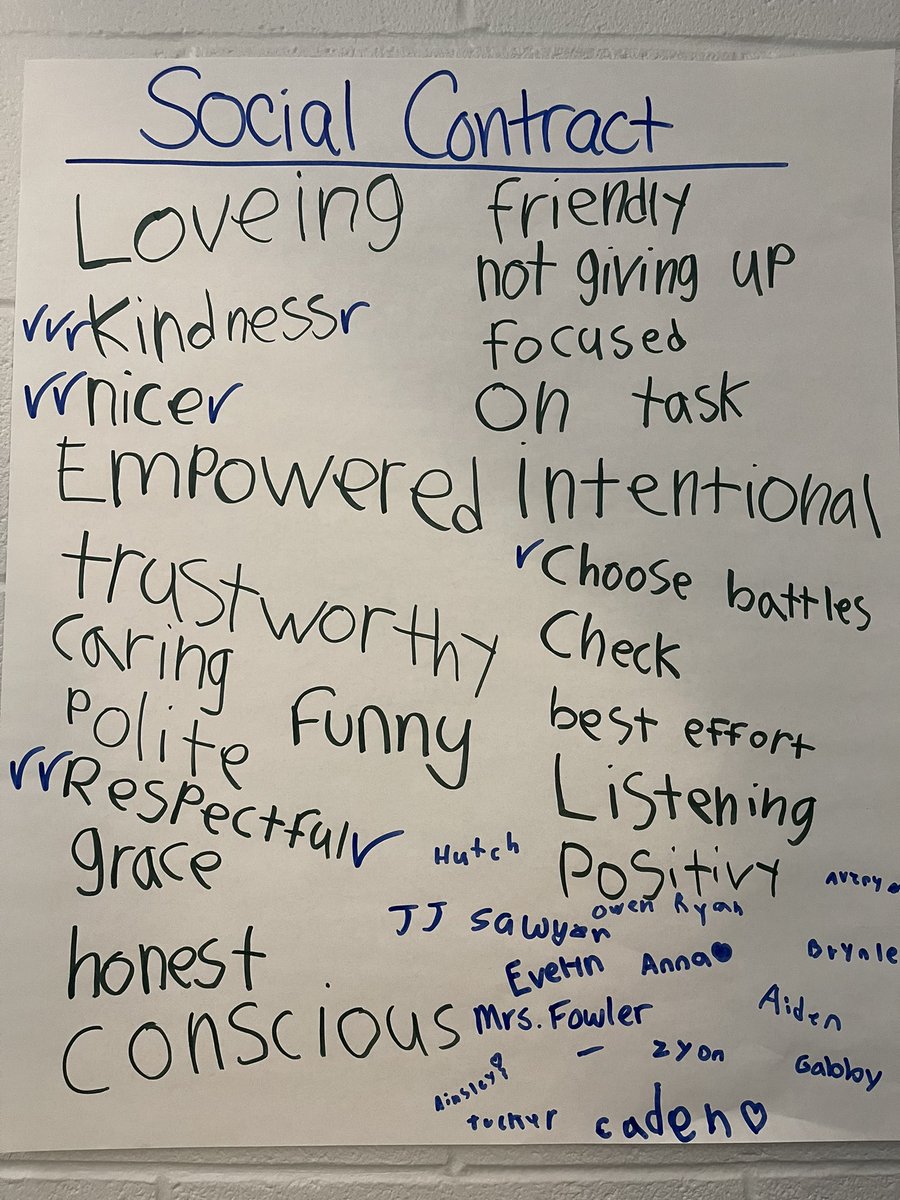 Social Contract
Loveing
✓✓✓Kindness✓
✓✓nice✓
Empowered
trustworthy
caring
Polite
Funny
✓✓Respectful✓
grace
honest
conscious
friendly
not giving up
focused
On task
Intentional
✓Choose battles
Check
best effort
Listening
Positivy
Hutch
Avery
JJ Sawyer
Owen Ryan
Evelin Anna
Brynle
Mrs. Fowler
Aiden
Zyon
Gabby
Ainsley
tucker
caden♡